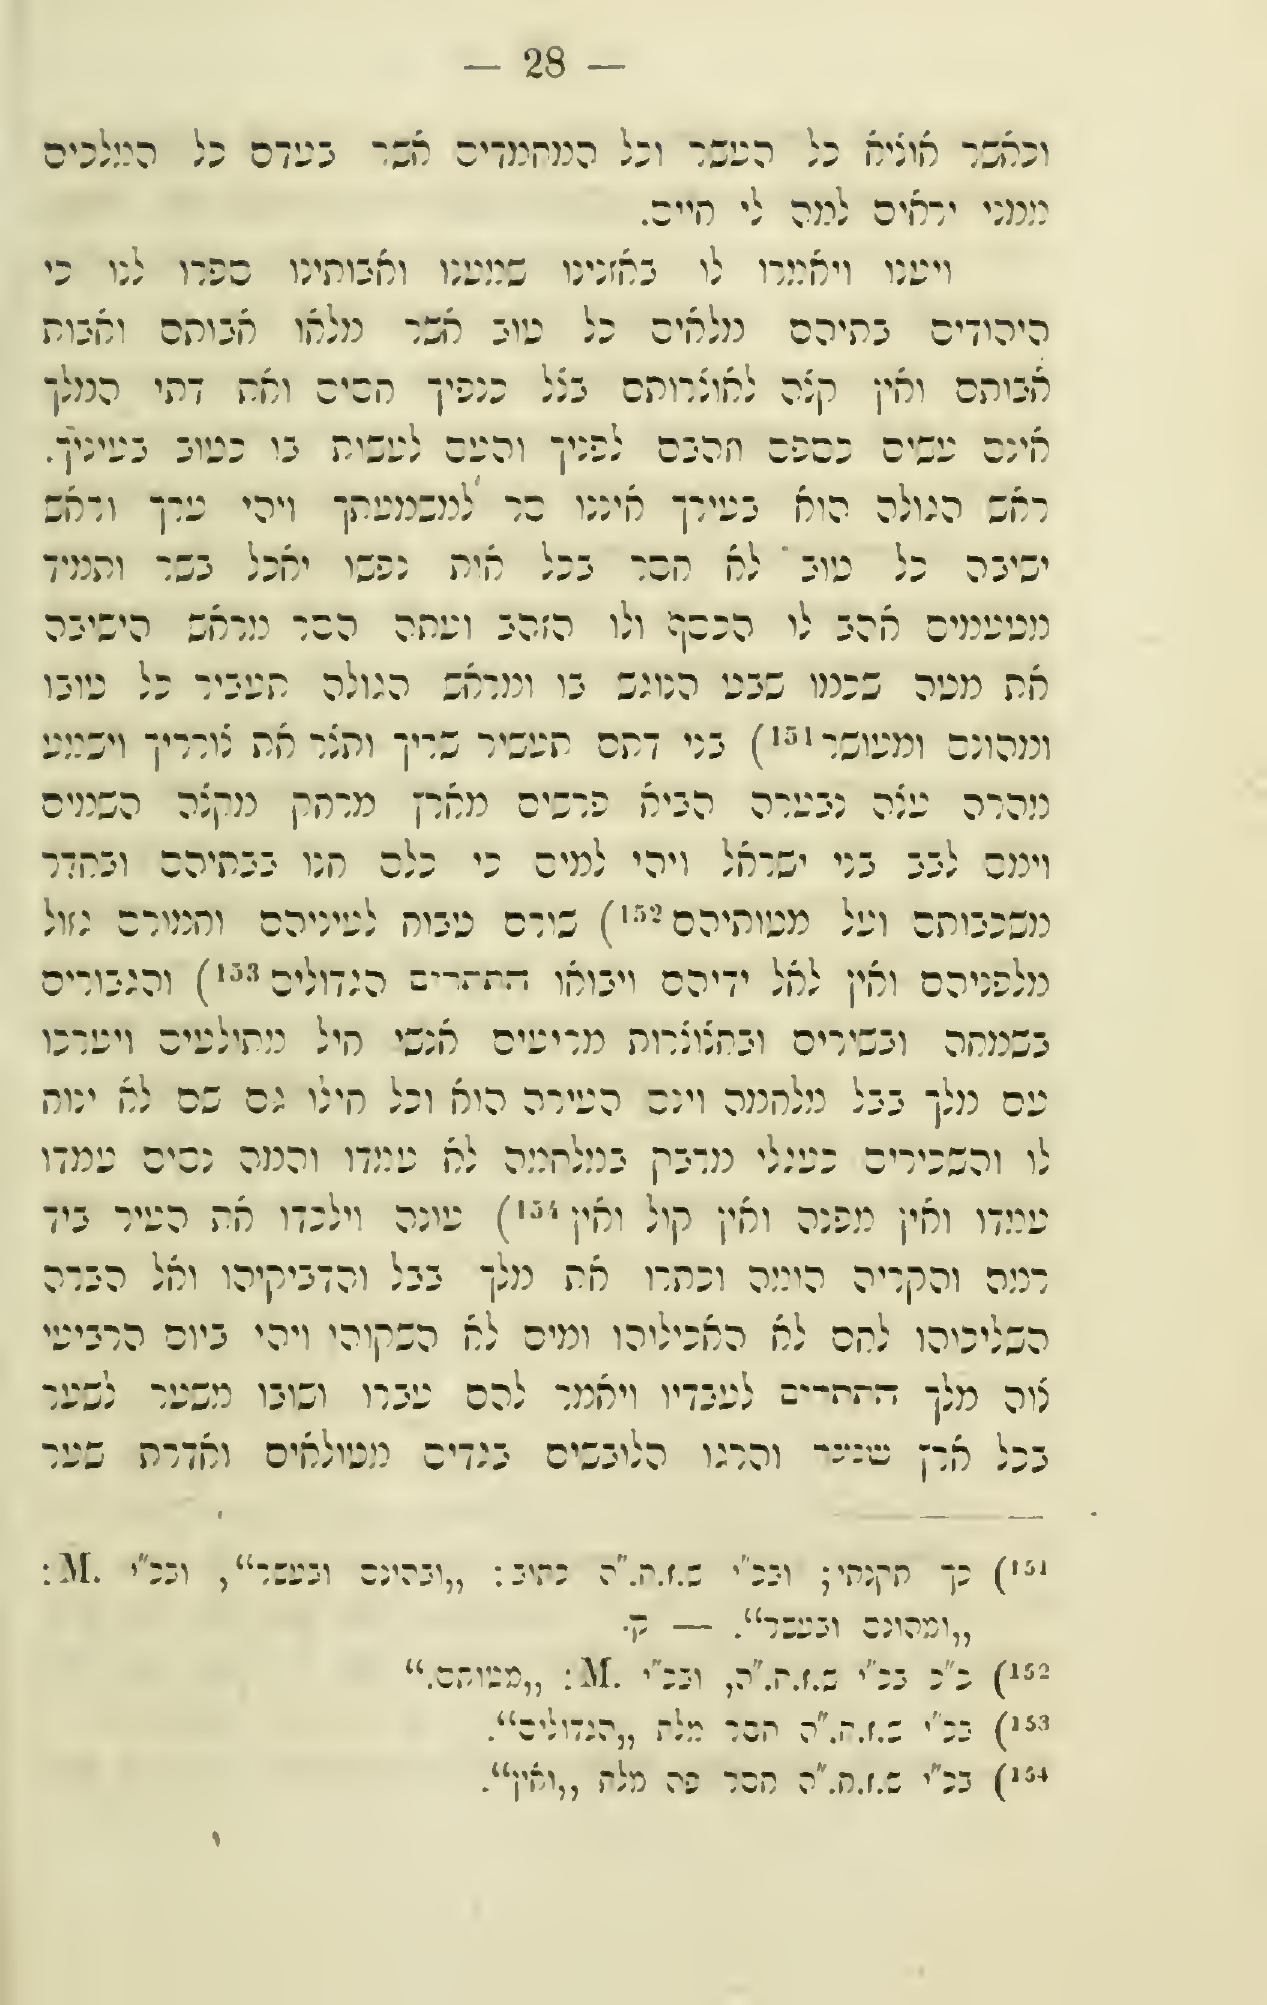 — 28 —
וכאשר אוציא כל העשר וכל המחמדים אשר בעדם כל המלכים
ממני יראים למה לי חיים.
ויענו ויאמרו לו באזנינו שמענו ואבותינו ספרו לנו כי
היהודים בתיהם מלאים כל טוב אשר מלאו אבותם ואבות
אבותם ואין קצה לאוצרותם בצל כנפיך חסים ואת דתי המלך
אינם עשים כספם חהבם לפניך והעם לעשות בו כטוב בעיניך.
ראש הגולה הוא בעירך איננו סר למשמעתך ויהי ערך וראש
ישיבה כל טוב לא חסר בכל אות נפשו יאכל בשר ותמיד
מטעמים אהב לו הכסף ולו הזהב ועתה הסר מראש הישיבה
את מטה שכמו שבט הנוגש בו ומראש הגולה תעביר כל טובו
ומהונם ומעושר¹⁵¹) בני דתם תעשיר שריך ותצר את צורריך וישמע
מהרה עצה נבערה הביא פרשים מארץ מרחק מקצה השמים
וימס לבב בני ישראל ויהי למים כי כלם חנו בבתיהם ובחדר
משכבותם ועל מטותיהם¹⁵²) שורם טבוח לעיניהם וחמורם גזול
מלפניהם ואין לאל ידיהם ויבואו התתרים הגדולים¹⁵³) והגבורים
בשמחה ובשירים ובחצוצרות מריעים אנשי חיל מתולעים ויערכו
עם מלך בבל מלחמה וינס העירה הוא וכל חילו גם שם לא ינוח
לו והשכירים כעגלי מרבק במלחמה לא עמדו והמה נסים עמדו
עמדו ואין מפנה ואין קול ואין¹⁵⁴) עונה וילכדו את העיר ביד
רמה והקריה הומה וכתרו את מלך בבל והדביקיהו ואל הברה
השליכוהו לחם לא האכילוהו ומים לא השקוהו ויהי ביום הרביעי
צוה מלך התתרים לעבדיו ויאמר להם עברו ושובו משער לשער
בכל ארץ שנער והרגו הלובשים בגדים מטולאים ואדרת שער
¹⁵¹) כך תקנתי; ובכ״י ש.ז.ח.״ה כתוב: „ובהונם ובעשר“, ובכ״י M.:
„ומהונם ובעשר“. — ק.
¹⁵²) כ״כ בכ״י ש.ז.ח.״ה, ובכ״י M.: „מטותם.“
¹⁵³) בכ״י ש.ז.ח.״ה חסר מלת „הגדולים“.
¹⁵⁴) בכ״י ש.ז.ח.״ה חסר פה מלת „ואין“.